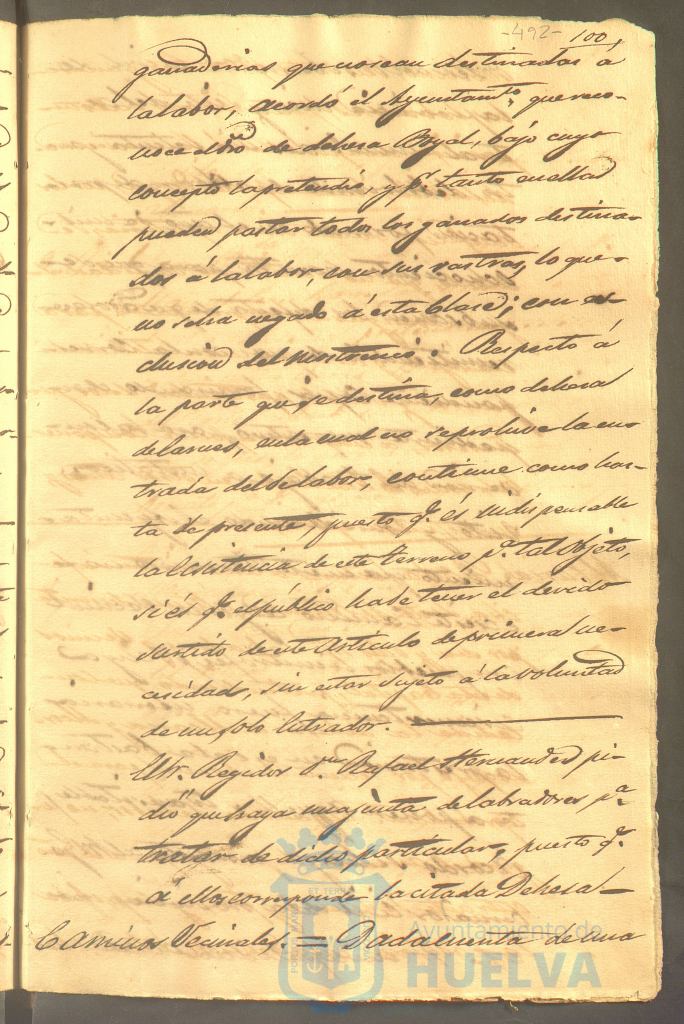 -492- 100,
ganaderias que no sean destinados á
la labor, acordó el Ayuntamto. que reco-
noce el dro. de dehesa Boyal, bájo cuyo
concepto la pretendió, y pr. tanto en ella
pueden pastar todos los ganados destina-
dos á la labor, con sus rastras, lo que
no se ha negado á esta Clase; con es-
clusion del mostrenco. Respecto á
la parte que se destina, como dehesa
de carnes, en la cual no se prohive la en-
trada del de labor, continue como has-
ta de presente, puesto qe. és indispensable
la Ecsistencia de este terreno pa. tal Objeto,
si és qe. el público ha de tener el devido
surtido de este Articulo de primera ne-
cesidad, sin estar sujeto á la voluntad
de un solo
El Sr. Regidor Dn. Rafael Hernandez pi-
dió que haya una junta de labradores pa.
tratar de dicho particular, puesto qe.
á ellos corresponde la citada Dehesa
Caminos Vecinales. = Dada cuenta de una
Ayuntamiento de
HUELVA